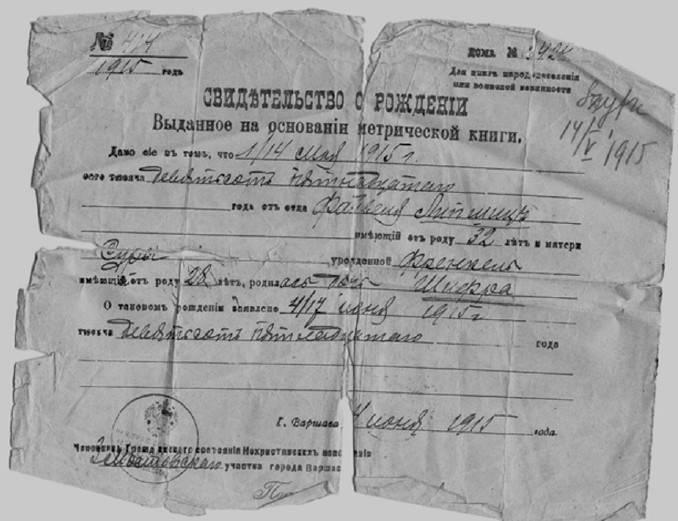 № 414
1915 годъ
Дома №
Для книгъ народонаселенія
или воинской повинности
14/V 1915
СВИДѢТЕЛЬСТВО О РОЖДЕНІИ
Выданное на основаніи метрической книги.
Дано сіе въ томъ, что 1/14 мая 1915 г.
сего тысяча девятьсотъ пятнадцатаго
года отъ отца
имѣющій отъ роду 32 лѣтъ и матери
Суры урожденной Френкель
имѣющій отъ роду 28 лѣтъ, родилась дочь Шифра
О таковомъ рожденіи заявлено 4/17 іюня 1915 г
тысяча девятьсотъ пятнадцатаго года
Г. Варшава, 4 іюня 1915 года.
Чиновникъ Гражданскаго состоянія Нехристіанскихъ
участка города Варшавы